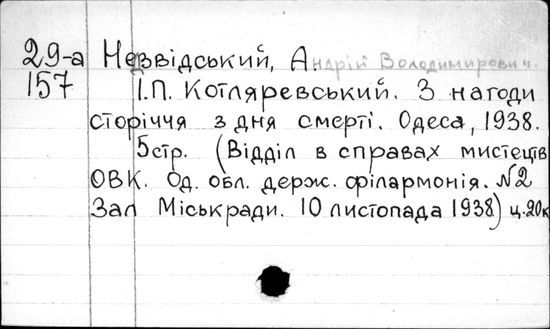 29-а Недзвідський, Андрій Володимирович.
157 І.П. Котляревський. З нагоди
сторіччя з дня смерті. Одеса, 1938.
5стр. (Відділ в справах мистецтв
ОВК. Од. обл. держ. філармонія. №2
Зал Міськради. 10 листопада 1938) ц. 20к